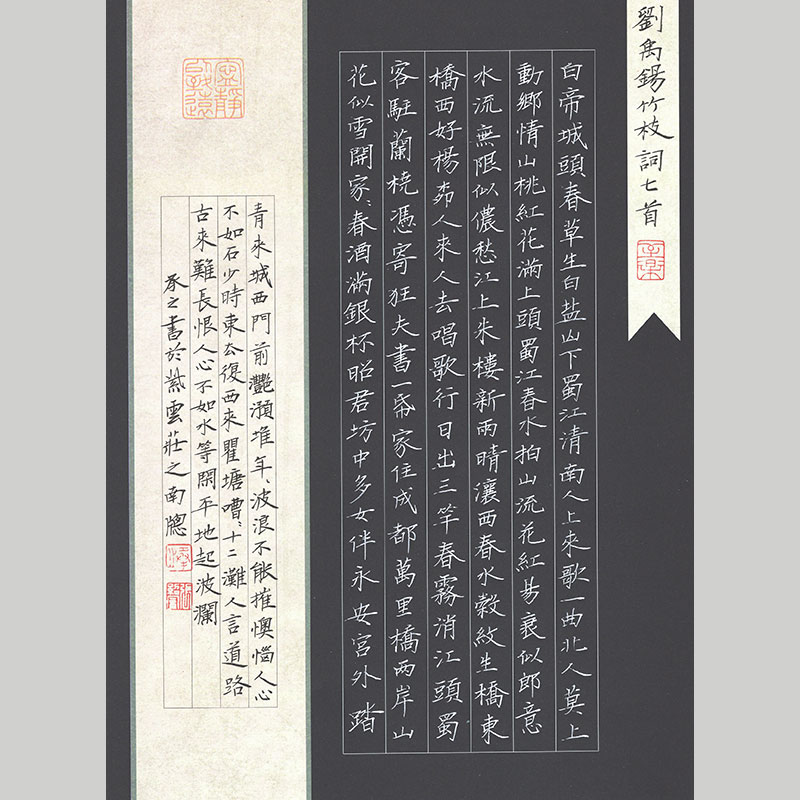 劉禹錫竹枝詞七首
白帝城頭春草生白盐山下蜀江清南人上來歌一曲北人莫上
動鄉情山桃紅花滿上頭蜀江春水拍山流花紅易衰似郎意
水流無限似儂愁江上朱樓新雨晴瀼西春水縠紋生橋東
橋西好楊柳人來人去唱歌行日出三竿春霧消江頭蜀
客駐蘭橈憑寄狂夫書一帋家住成都萬里橋兩岸山
花似雪開家〻春酒滿銀杯昭君坊中多女伴永安宮外踏
寧靜致遠
青來城西門前灧澦堆年〻波浪不能摧懊惱人心
不如石少時東去復西來瞿塘嘈〻十二灘人言道路
古來難長恨人心不如水等閑平地起波瀾
承之書於紫雲莊之南牕